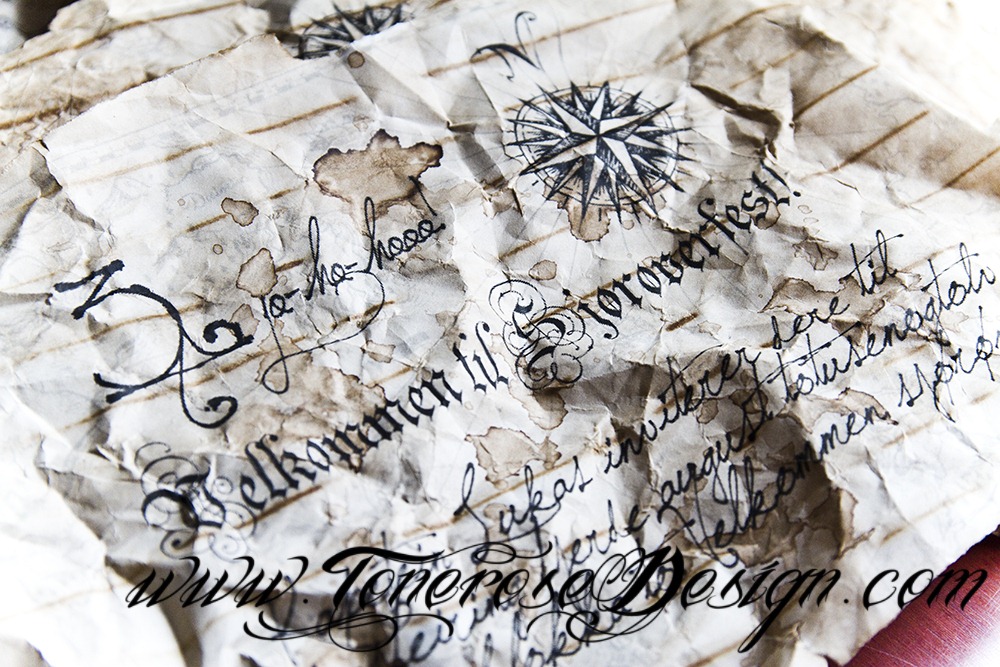 Yo-ho-hooo
Velkommen til Sjoroverfest!!
Lukas inviterer dere til
fjerde august totusenogtolv
Velkommen
www.ToneroseDesign.com